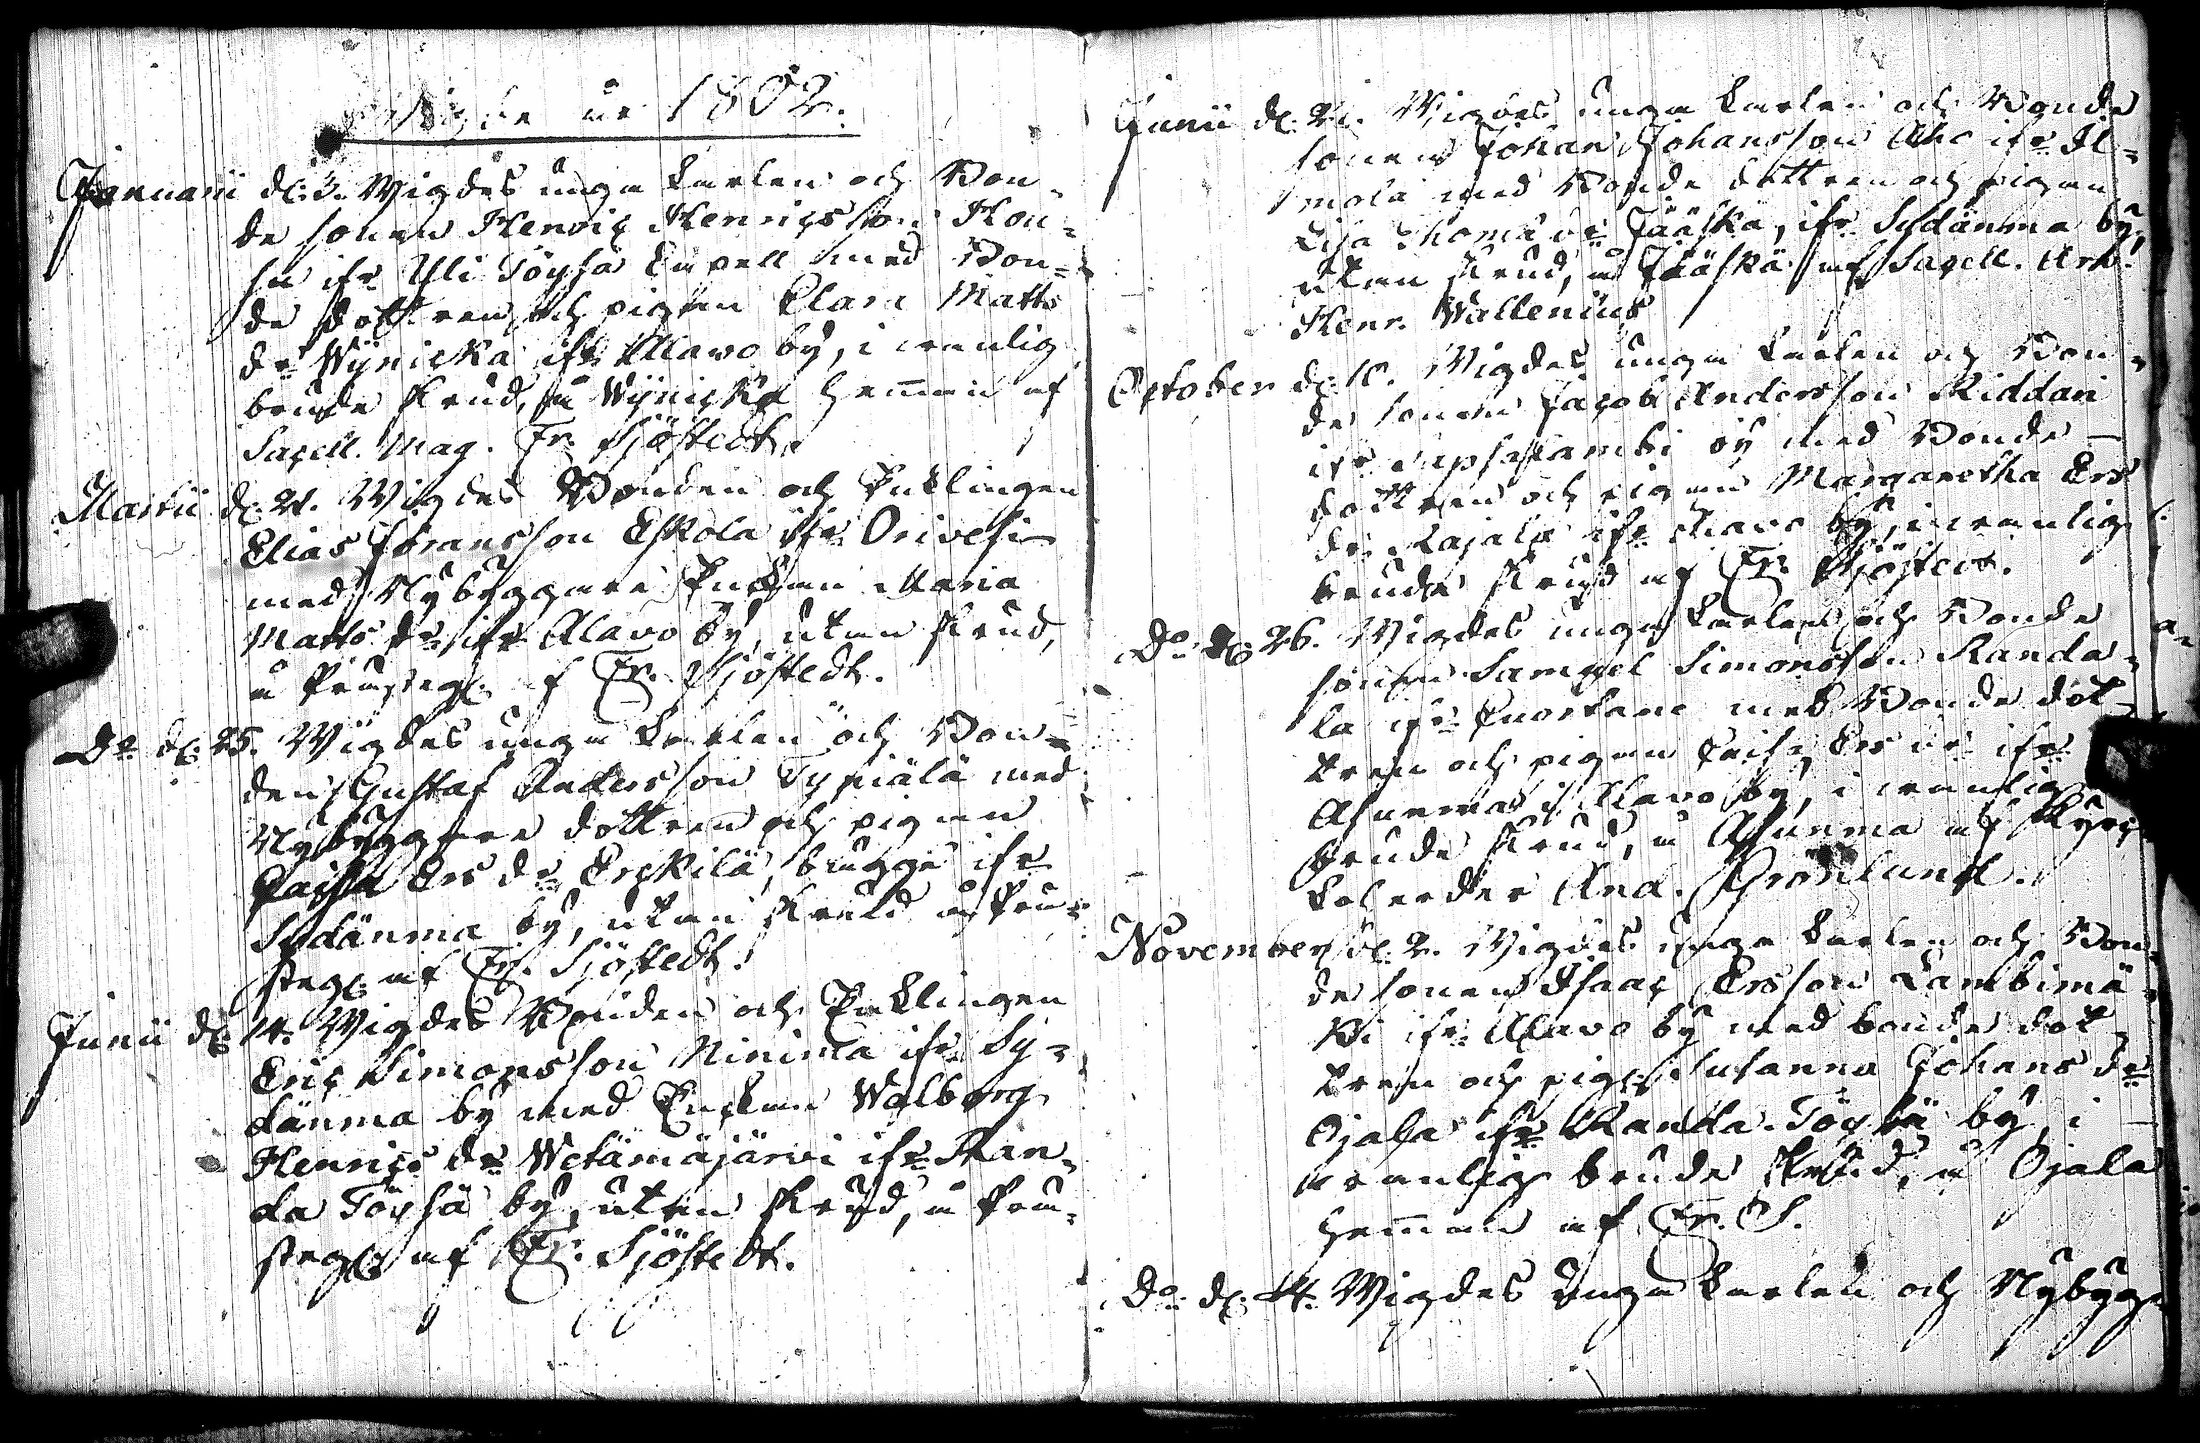 Wigde år 1802.
Januarii d: 3. Wigdes unga Karlen och Bon-
de sonen Henric Henricsson Kou-
su ifr. Yli Töysä Capell med Bon-
de dottren och pigan Clara Matts
dr Wÿnickä ifr. Alavo by, i vanlig
brude skrud, å Wÿnickä hemman af
Sacell. Mag. Fr. Sjöstedt.
Martii d: 21. Wigdes Bonden och Enklingen
Elias Göransson Eskola ifr. Orivesi
med Nybyggare Enckan Maria
Matts dr ifr. Alavo by, utan skrud,
å Prusteg: af Fr. Sjöstedt.
Do d: 25. Wigdes unga Karlen och Bon-
den Gustaf Andersson Typiälä med
Nybyggare dottren och pigan
Caisa Ers dr Erckilä brugge ifr.
Sydänma by, utan skrud å Pru-
steg: af Fr. Sjöstedt.
Junii d: 14. Wigdes Bonden och Enklingen
Eric Simonsson Ninima ifr. Sy-
dänma by med Enckan Walborg
Henrics dr Wetämäjärvi ifr. Ran-
da Töysä by, utan skrud, å Pru-
steg: af Fr. Sjöstedt.
Junii d: 21. Wigdes unga Karlen och Bonde
sonen Johan Johansson Aho ifr. Il-
mola med Bonde dottren och pigan
Lisa Thomæ dr Jääskä, ifr. Sydänma by,
utan skrud, å Jääskä af Sacell. Arv.
Henr. Wallenius
October d: 10. Wigdes unga Karlen och Bon-
de sonen Jacob Andersson Riddari
ifr. by med Bonde
dottren och pigan Margaretha Ers
dr Rajala ifr. Alavo by, i vanlig
brude skrud af Fr. Sjöstedt.
Do d: 26. Wigdes unga Karlen och Bonde
sonen Samuel Simonsson Randa-
la ifr. Kuortane med Bonde dot-
tren och pigan Caisa Ers dr ifr.
Asunma i Alavo by, i vanlig
brude skrud, å Asunma af Kyrc
koherden And. Grönlund.
November d: 2. Wigdes unga Karlen och Bon-
de sonen Isaac Ersson Lambimä-
ki ifr. Alavo by med bonde dot-
tren och pig: Susanna Johans dr
Ojala ifr. Randa Töysä by, i
vanlig brude skrud, å Ojala
hemman af Fr. S.
Do d: 14. Wigdes unga Karlen och Nybyg-